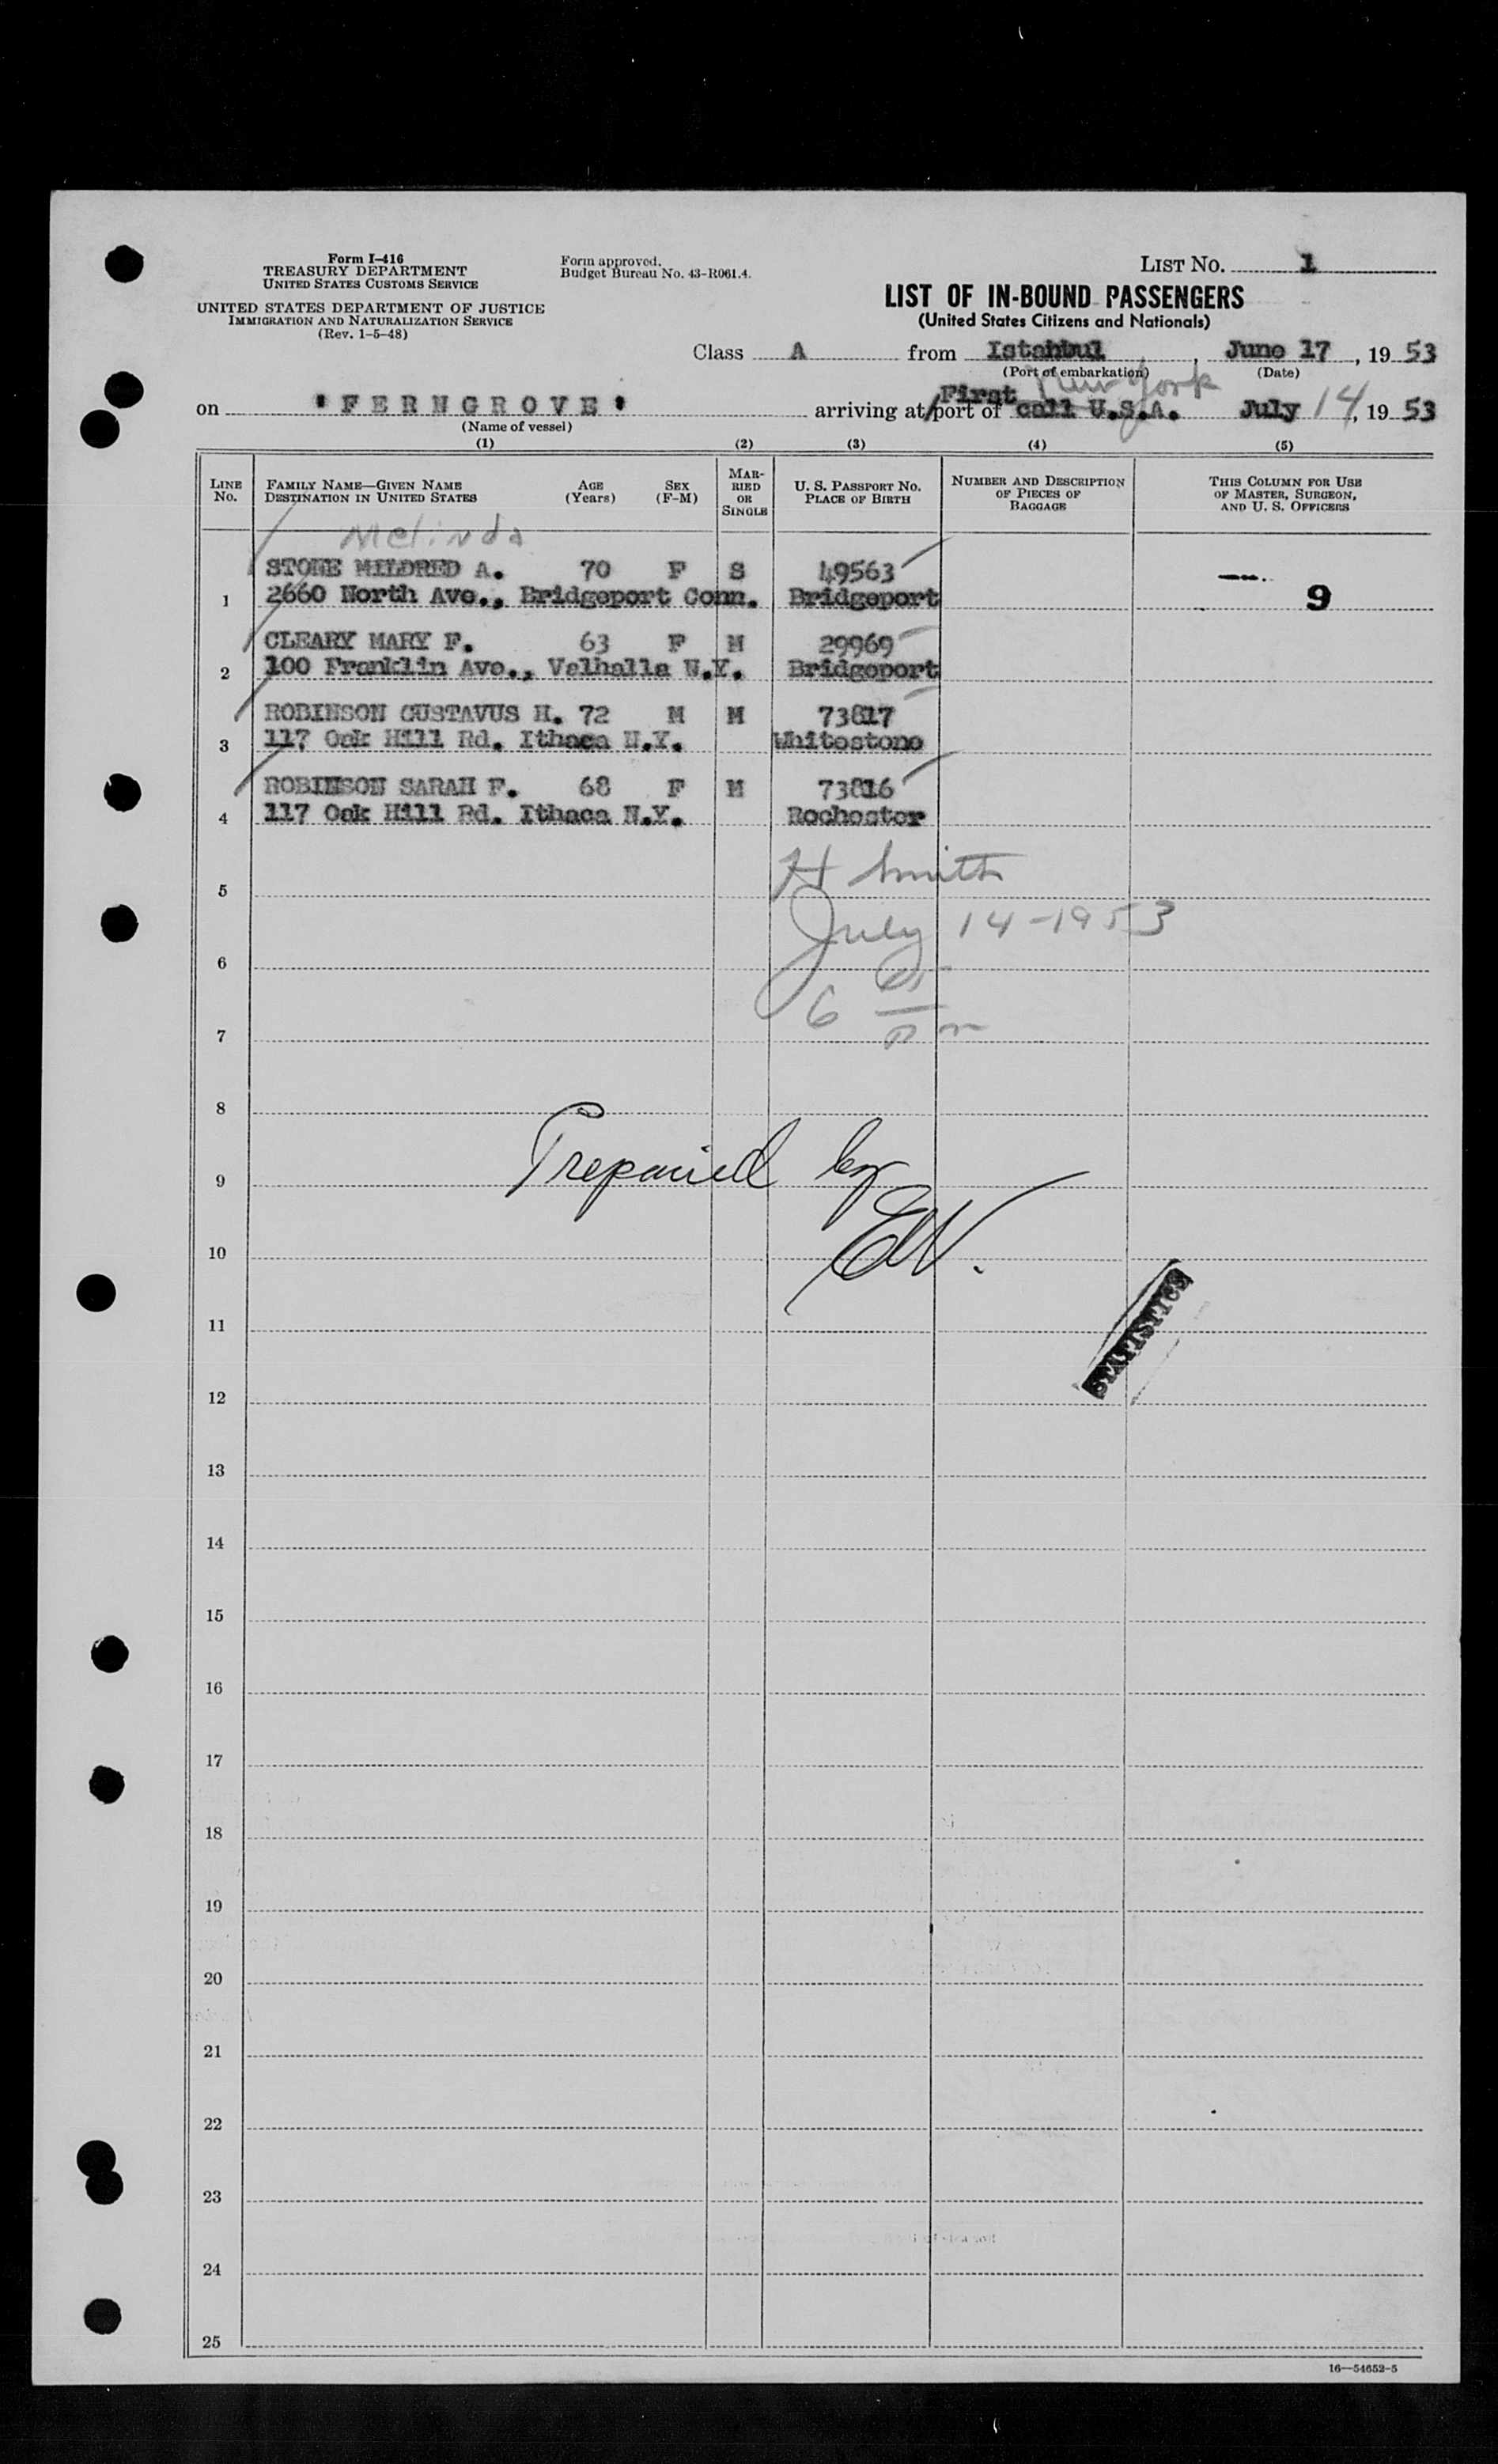 Form I-416
TREASURY DEPARTMENT
UNITED STATES CUSTOMS SERVICE
UNITED STATES DEPARTMENT OF JUSTICE
IMMIGRATION AND NATURALIZATION SERVICE
(Rev. 1-5-48)
Form approved.
Budget Bureau No. 43-R061.4.
LIST No. 1
LIST OF IN-BOUND PASSENGERS
(United States Citizens and Nationals)
Class A from Istanbul, June 17, 19 53
(Port of embarkation) (Date)
New York
on "FERNGROVE" arriving at/First port of call U.S.A. July 14, 19 53
(Name of vessel)
(1) (2) (3) (4) (5)
LINE No. FAMILY NAME—GIVEN NAME DESTINATION IN UNITED STATES AGE (Years) SEX (F-M) MARRIED OR SINGLE U. S. PASSPORT No. PLACE OF BIRTH NUMBER AND DESCRIPTION OF PIECES OF BAGGAGE THIS COLUMN FOR USE OF MASTER, SURGEON, AND U. S. OFFICERS
Melinda
STONE MILDRED A. 70 F S 49563
1 2660 North Ave., Bridgeport Conn. Bridgeport 9
CLEARY MARY F. 63 F M 29969
2 100 Franklin Ave., Valhalla N.Y. Bridgeport
ROBINSON GUSTAVUS H. 72 M M 73817
3 117 Oak Hill Rd. Ithaca N.Y. Whitestone
ROBINSON SARAH F. 68 F M 73816
4 117 Oak Hill Rd. Ithaca N.Y. Rochester
H Smith
5
July 14-1953
6
6 pm
7
8
Prepared by
9
EW.
10
STATISTICS
11
12
13
14
15
16
17
18
19
20
21
22
23
24
25
16—54652-5